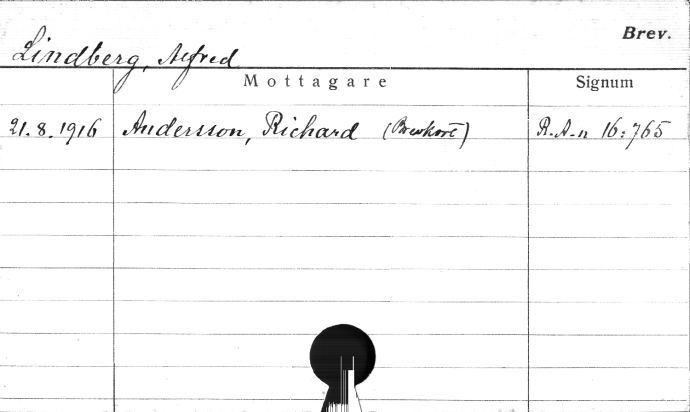 Brev.
Lindberg, Alfred
Mottagare Signum
21.8.1916 Andersson, Richard (Brevkort) R.A-n 16:765